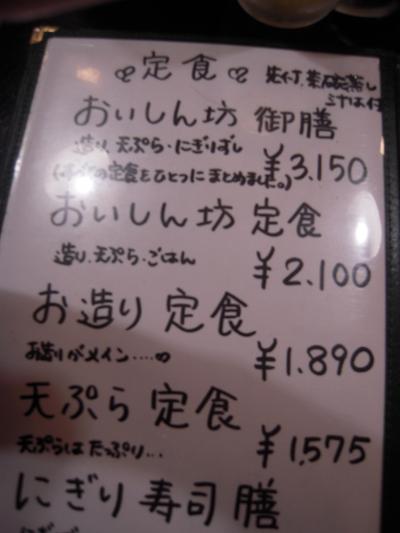 定食
先付、茶碗蒸し
おいしん坊 御膳
造り、天ぷら・にぎりずし
¥3.150
の定食をひとつにまとめました。)
おいしん坊 定食
造り、天ぷら・ごはん
¥2.100
お造り 定食
お造りがメイン・・・・♡
¥1.890
天ぷら 定食
天ぷらはたっぷり・・・
¥1,575
にぎり寿司膳